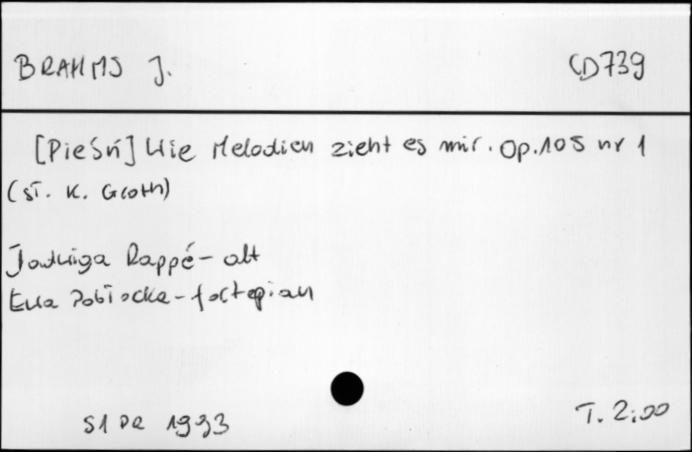 BRAHMS J. CD739
[Pieśń] Wie Melodien zieht es mir. Op.105 nr 1
(sł. K. Groth)
Jadwiga Rappé - alt
Ewa Pobłocka - fortepian
S1 PR 1993 T. 2:00